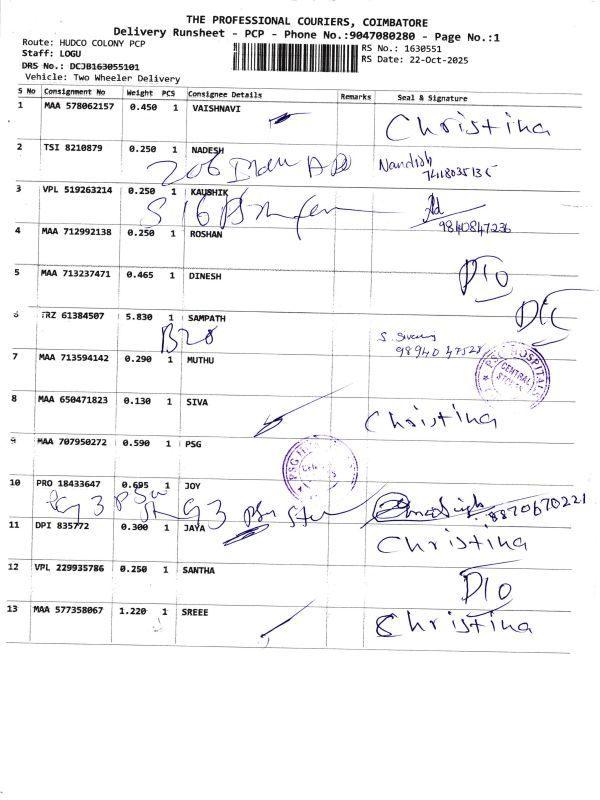 THE PROFESSIONAL COURIERS, COIMBATORE
Delivery Runsheet - PCP - Phone No.:9047080280 - Page No.:1
Route: HUDCO COLONY PCP
Staff: LOGU
DRS No.: DCJB163055101
Vehicle: Two Wheeler Delivery
RS No.: 1630551
RS Date: 22-Oct-2025
S No Consignment No Weight PCS Consignee Details Remarks Seal & Signature
1 MAA 578062157 0.450 1 VAISHNAVI Christina
2 TSI 8210879 0.250 1 NADESH
206 Nandish
7418035135
3 VPL 519263214 0.250 1 KAUSHIK
S 16 9840847236
4 MAA 712992138 0.250 1 ROSHAN
5 MAA 713237471 0.465 1 DINESH D/O
6 TRZ 61384507 5.830 1 SAMPATH
B20
7 MAA 713594142 0.290 1 MUTHU
PSG HOSPITALS
CENTRAL
8 MAA 650471823 0.130 1 SIVA Christina
9 MAA 707950272 0.590 1 PSG
PSG
10 PRO 18433647 0.695 1 JOY
8870670221
11 DPI 835772 0.300 1 JAYA Christina
12 VPL 229935786 0.250 1 SANTHA D/O
13 MAA 577358067 1.220 1 SREEE Christina